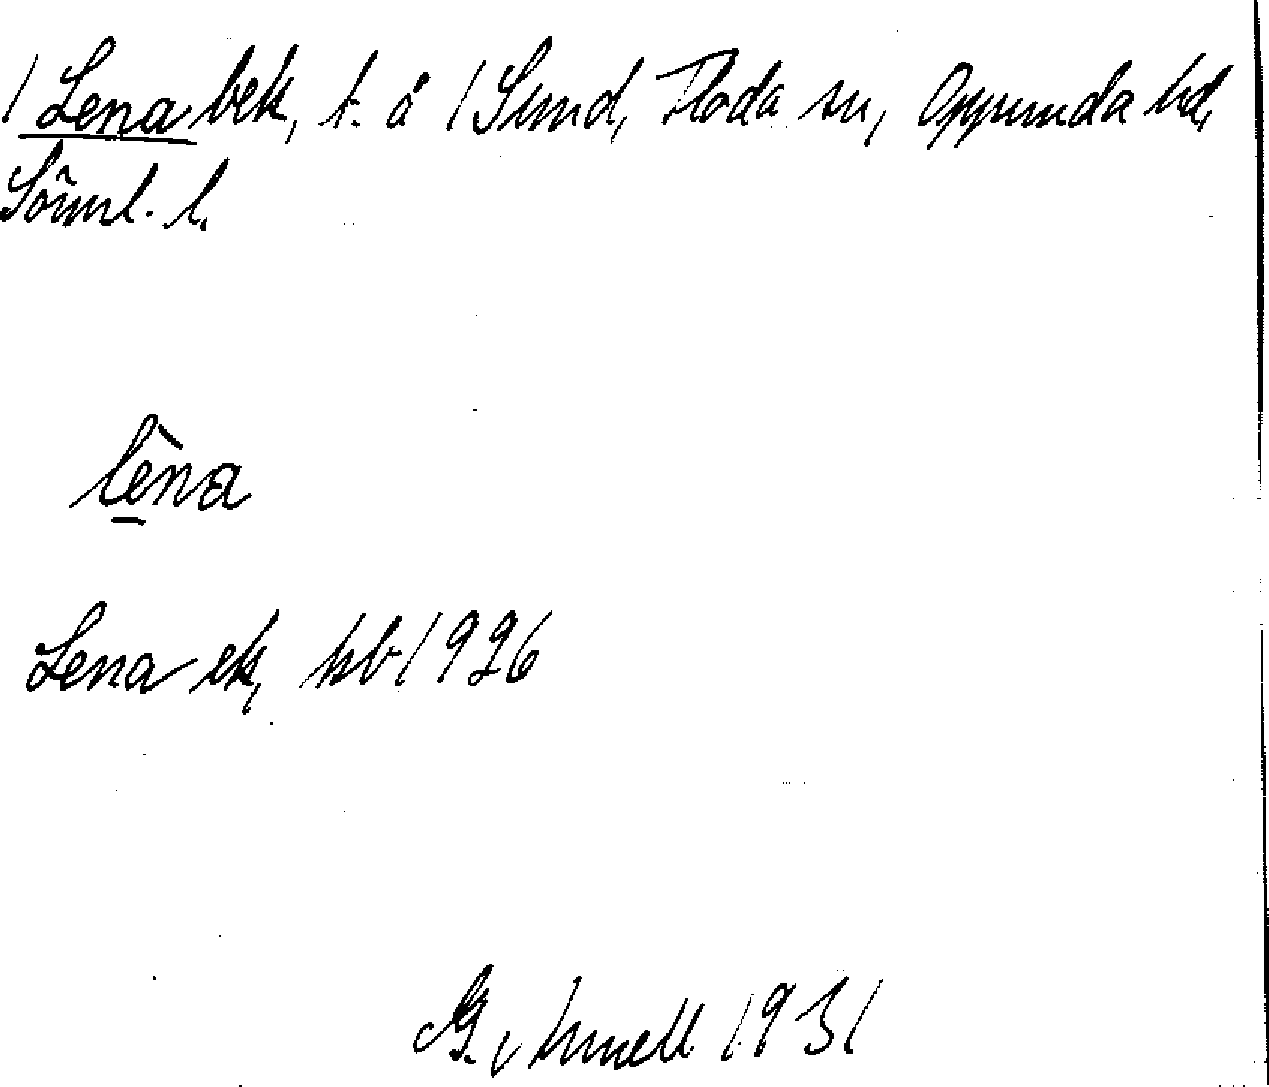 / Lena bek, t. å / Sund, Floda sn, Oppunda hd,
Sörml. l.
lèna
Lena ek, kb 1926
1931